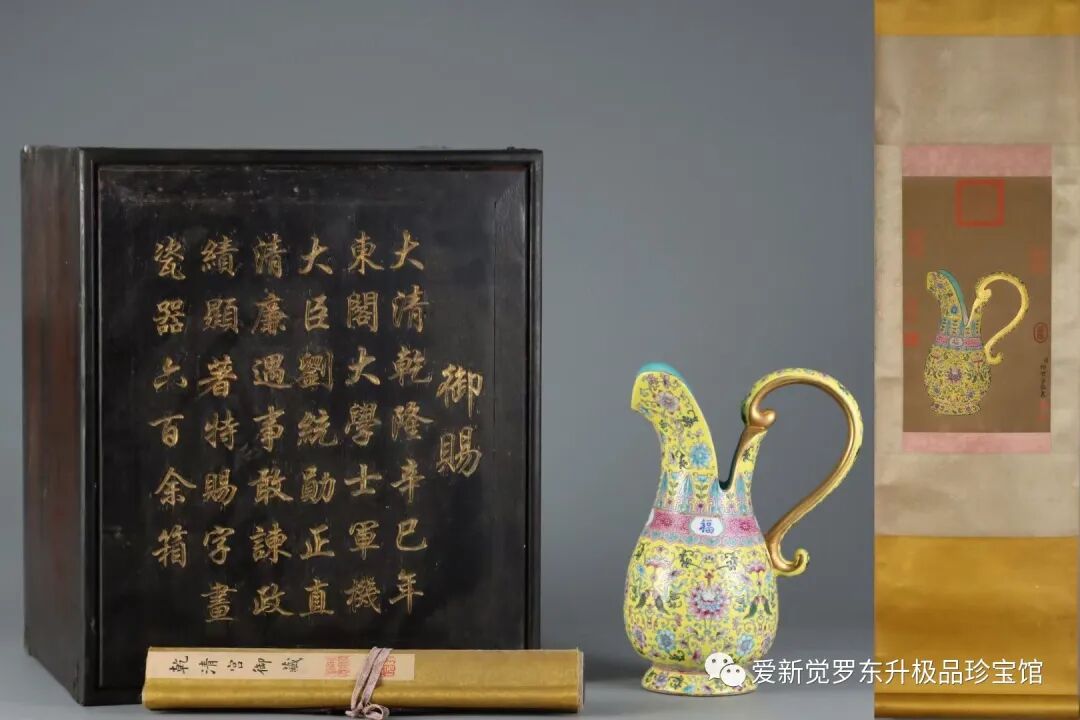 御賜
大清乾隆辛巳年
東閣大學士軍機
大臣劉統勛正直
清廉遇事敢諫政
績顯著特賜字畫
瓷器六百余箱
乾清宮御藏
福
爱新觉罗东升极品珍宝馆